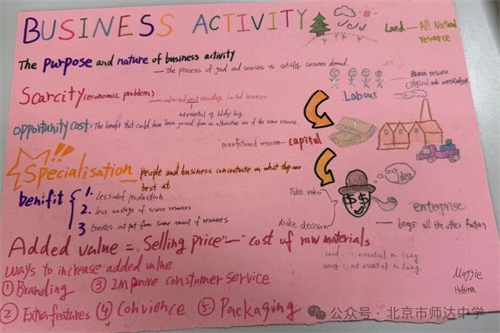 BUSINESS ACTIVITY
Land — All Natural
resource
The purpose and nature of business activity
— the process of good and sources to satisfy consumer demand.
Scarcity (economic problem)
— unlimited wants exceeding limited resources
Human resource
(physical and
Labour
opportunity cost: The benefit that could have been gained from an alternative use of the same resource.
capital
Specialisation — people and business concentrate on what they are
best at
benifit
1. Less cost of production
2. less wastage of scarce resources
3 out put from same amount of resources
idea
Take risks
Make decision
enterprise
— brings all the other factors
Added value = Selling price "—" cost of raw materials
need : essential to living
want : not essential to living
Ways to increase added value
① Branding
③ Improve constomer service
② Extra features
④ Convience
⑤ Packaging
Maggie
Helena
公众号 · 北京市师达中学